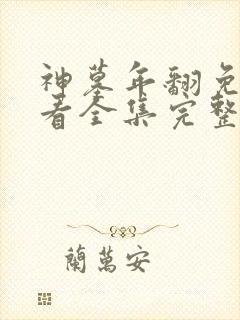 神墓年翻免
看全集完整
蘭萬安